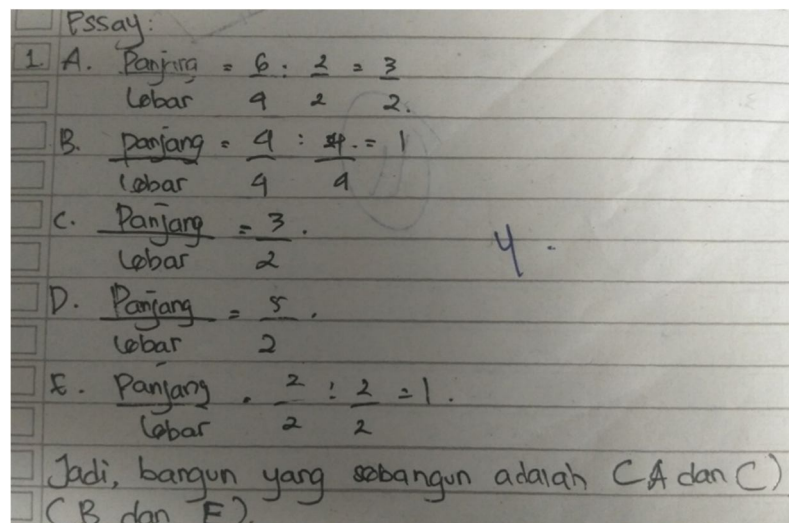 Essay:
1. A. Panjang = 6 : 2 = 3
Lebar 4 2 2.
B. panjang = 4 : 4. = 1
Lebar 4 4
C. Panjang = 3.
Lebar 2
D. Panjang = 5.
Lebar 2
E. Panjang. 2 : 2 = 1.
Lebar 2 2
Jadi, bangun yang sebangun adalah (A dan C)
(B dan E).
4.